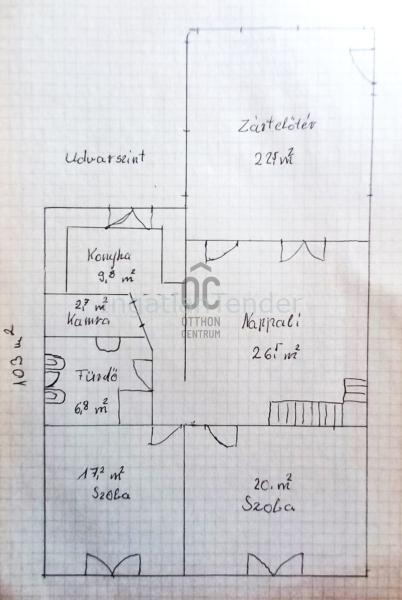 Zárt előtér
22,5 m²
Udvarszint
Konyha
9,8 m²
2,7 m²
Kamra
ÓC
OTTHON
CENTRUM
Nappali
26,5 m²
103 m²
Fürdő
6,8 m²
17,2 m²
Szoba
20. m²
Szoba